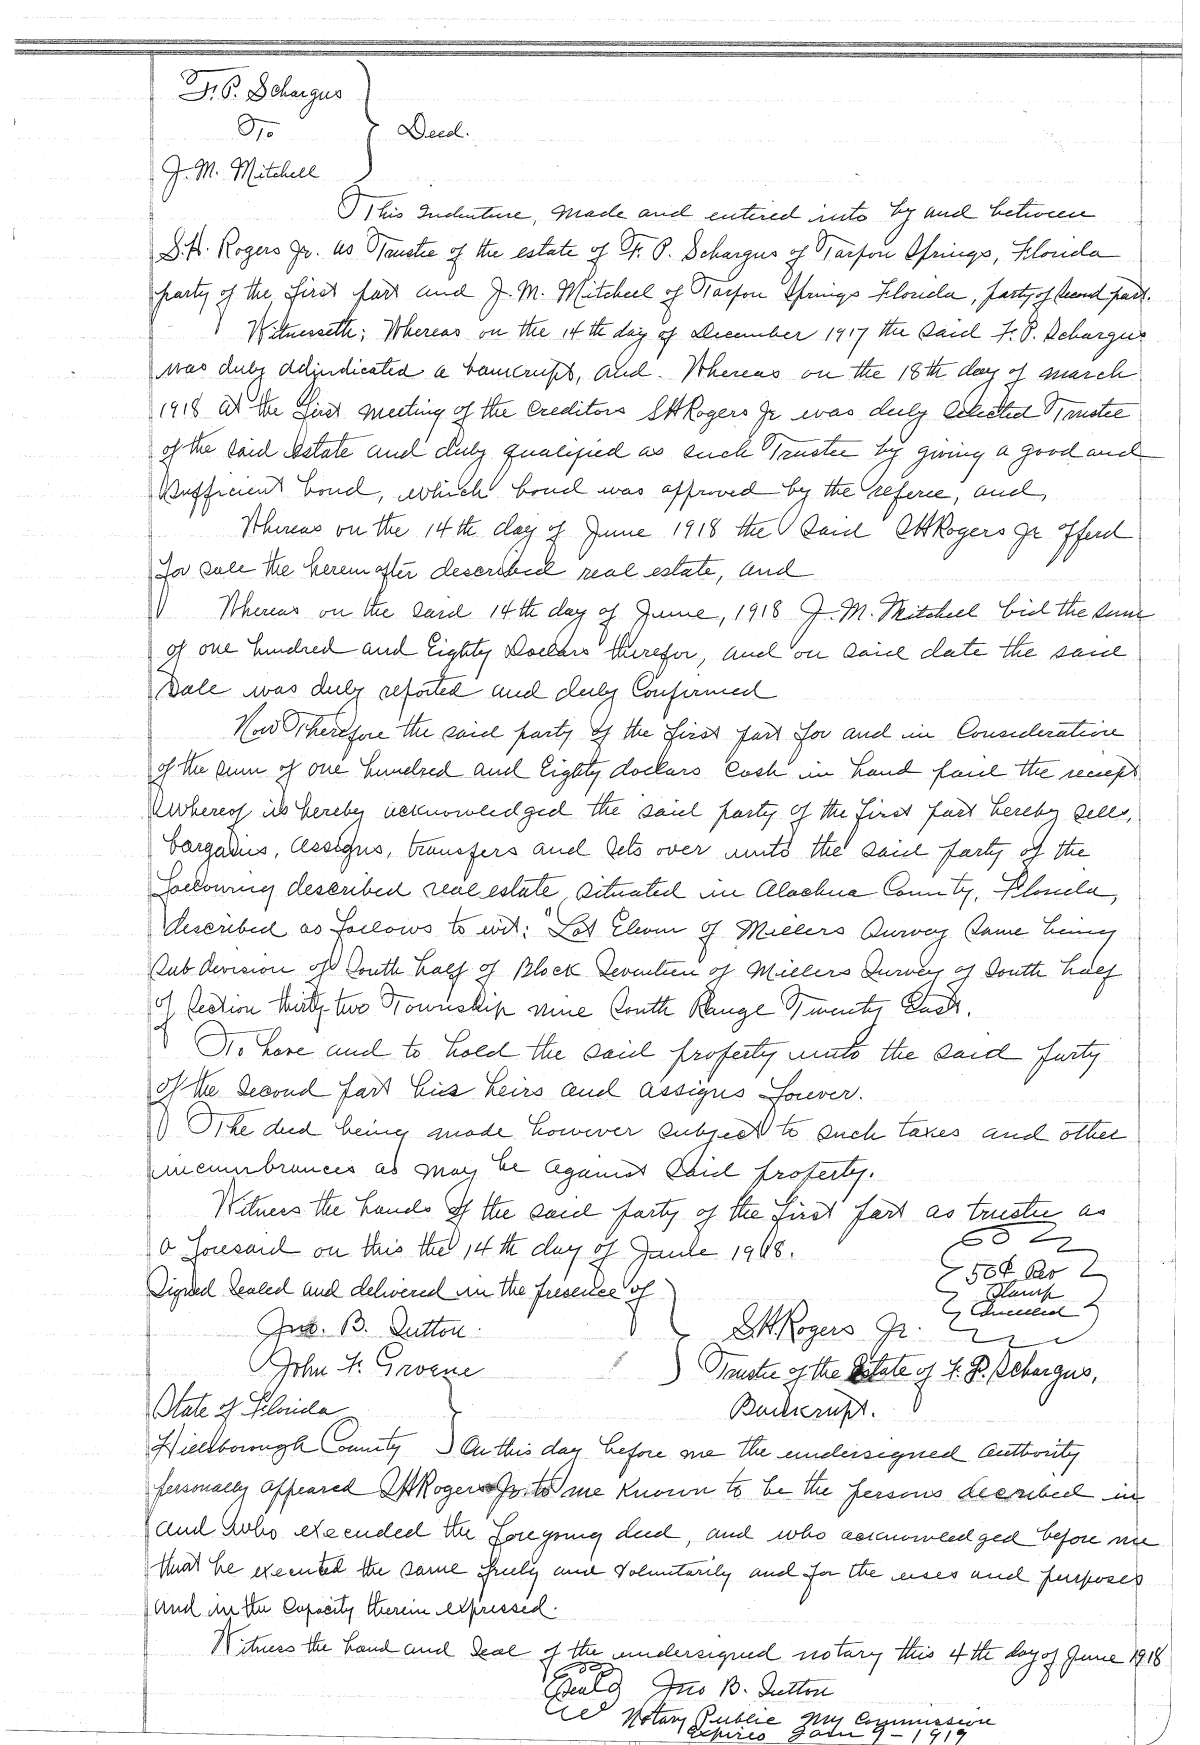 F. P. Schargus
To
Deed.
J. M. Mitchell
This Indenture, made and entered into by and between
S.H. Rogers Jr. as Trustee of the estate of F. P. Schargus of Tarpon Springs, Florida
party of the first part and J. M. Mitchell of Tarpon Springs Florida, party of second part.
Witnesseth; Whereas on the 14th day of December 1917 the said F. P. Schargus
was duly adjudicated a bankrupt, and. Whereas on the 18th day of march
1918 at the first meeting of the creditors SH Rogers Jr was duly selected Trustee
of the said estate and duly qualified as such Trustee by giving a good and
sufficient bond, which bond was approved by the referee, and,
Whereas on the 14th day of June 1918 the said SH Rogers Jr offerd
for sale the hereinafter described real estate, and
Whereas on the said 14th day of June, 1918 J. M. Mitchell bid the sum
of one hundred and Eighty Dollars therefor, and on said date the said
Sale was duly reported and duly Confirmed
Now Therefore the said party of the first part for and in Consideration
of the sum of one hundred and Eighty dollars cash in hand paid the reciept
whereof is hereby acknowledged the said party of the first part hereby sells,
bargains, assigns, transfers and sets over unto the said party of the
following described real estate situated in Alachua County, Florida,
described as follows to wit: "Lot Eleven of Millers Survey same being
sub division of South half of Block Seventeen of Millers Survey of South half
of Section thirty-two Township nine South Range Twenty East.
To have and to hold the said property unto the said party
of the second part his heirs and assigns forever.
The deed being made however subject to such taxes and other
incumbrances as may be against said property.
Witness the hands of the said party of the first part as trustee as
a foresaid on this the 14th day of June 1918.
50¢ Rev
Stamp
Cancelled
Signed Sealed and delivered in the presence of
Jno. B. Sutton.
S H Rogers Jr.
John F. Groene
Trustee of the Estate of F. P. Schargus,
Bankrupt.
State of Florida
Hillsborough County
On this day before me the undersigned authority
personally appeared SH Rogers Jr. to me known to be the persons decribed in
and who executed the foregoing deed, and who acknowledged before me
that he executed the same freely and voluntarily and for the uses and purposes
and in the capacity therein expressed.
Witness the hand and seal of the undersigned notary this 4th day of June 1918
Seal
Jno B. Sutton
Notary Public My Commission
Expires Jan 9-1919